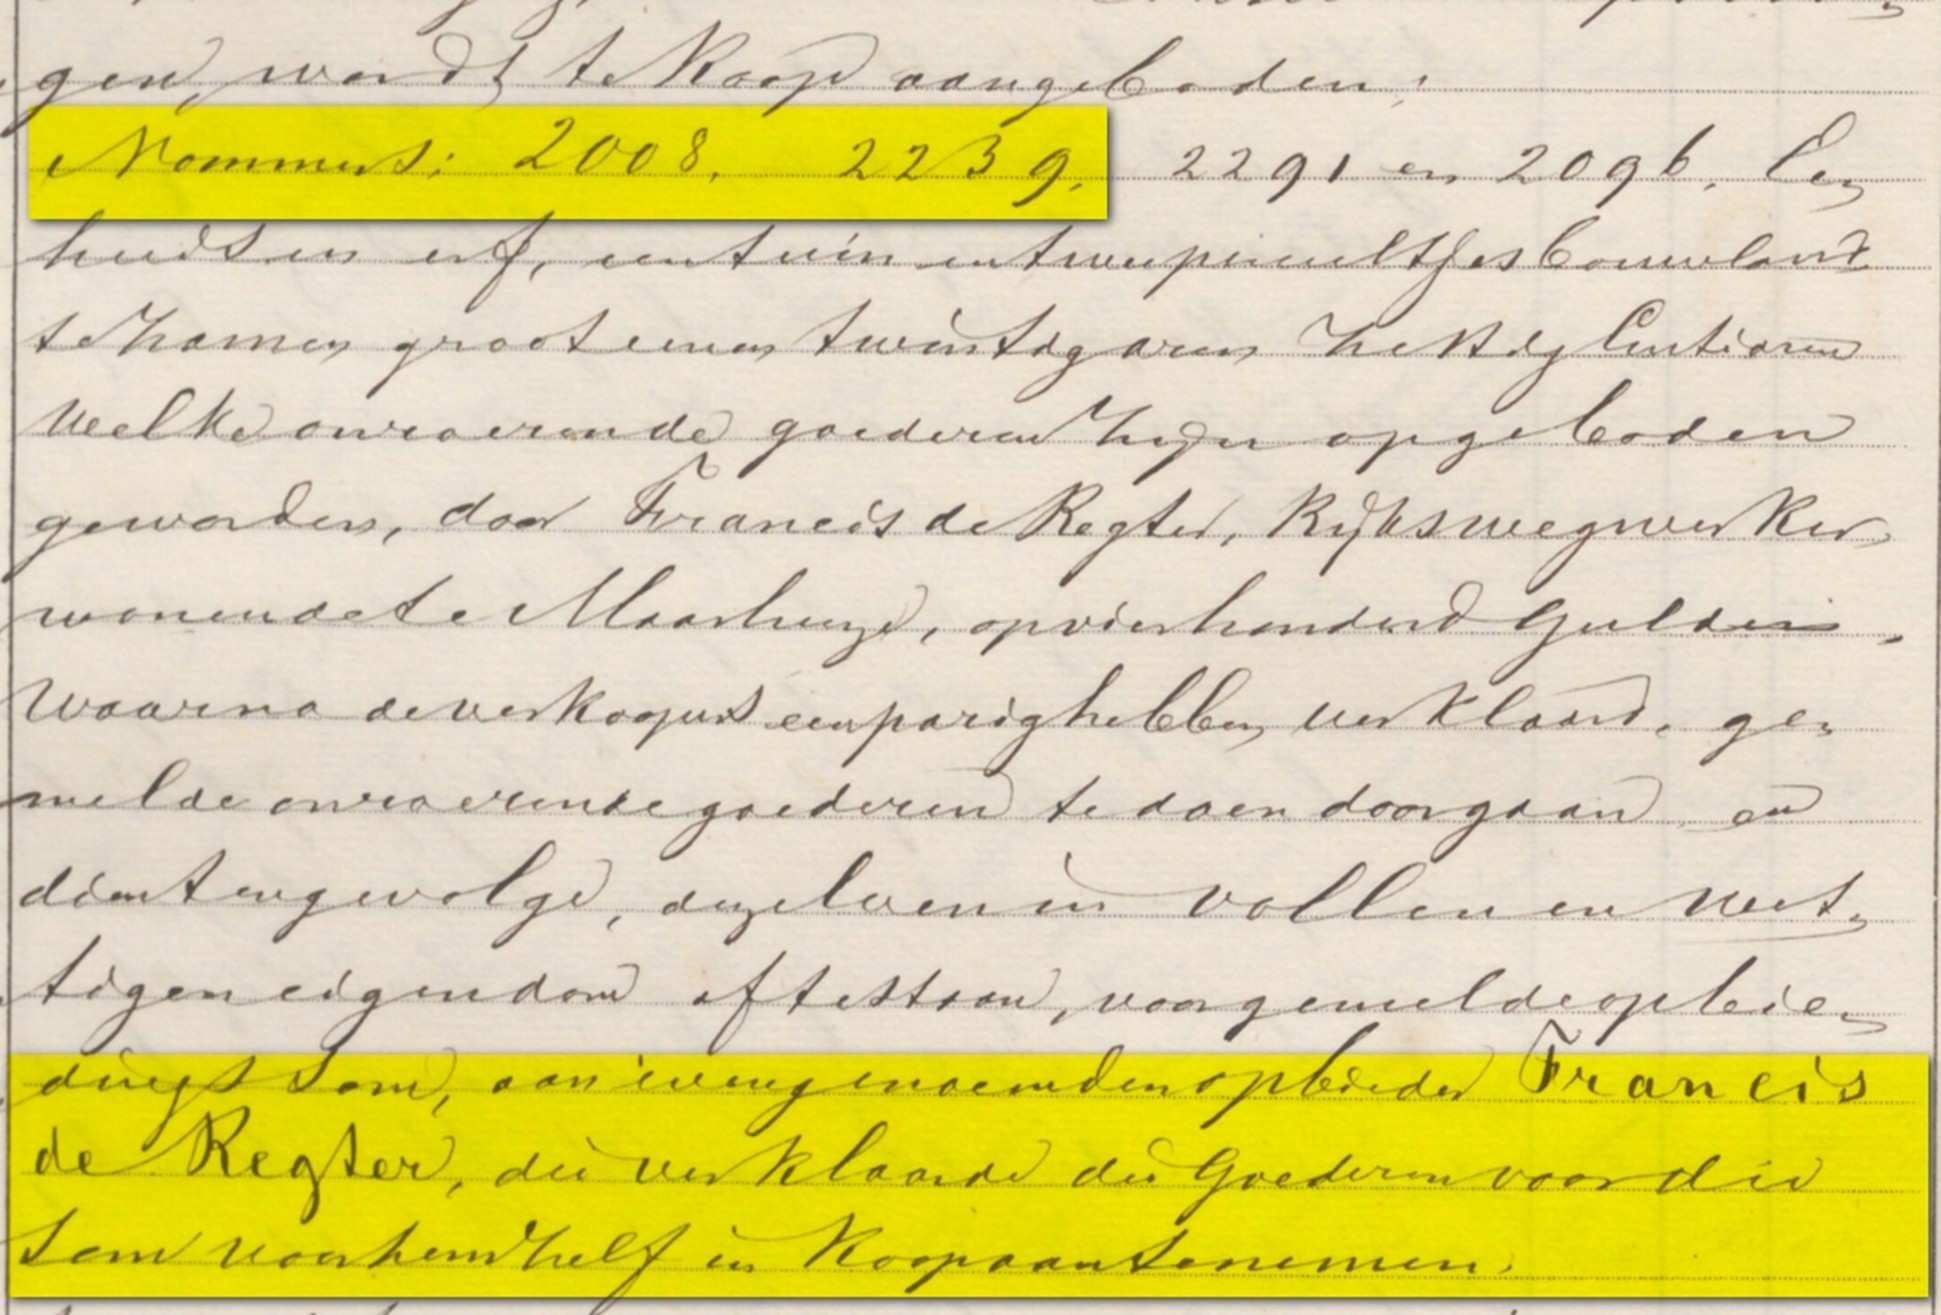 gen, wordt te koop aangeboden:
Nommers: 2008. 2239. 2291 en 2096. Een
huis en erf, een tuin en twee perceeltjes bouwland
te Hamen, groot eenen twintig aren zestig Centiaren
Welke onroerende goederen zijn opgeboden
geworden, door Francis de Regter, Rijkswegwerker,
wonende te Maarheeze, op vierhonderd Gulden.
Waarna de verkoopers eenparig hebben verklaard, ge-
melde onroerende goederen te doen doorgaan en
dientengevolge, dezelven in vollen en wet-
tigen eigendom aftestaan, voor gemelde opbie-
dingssom, aan evengenoemden opbieder Francis
de Regter, die verklaarde die Goederen voor die
som voor hem zelf in koop aantenemen.